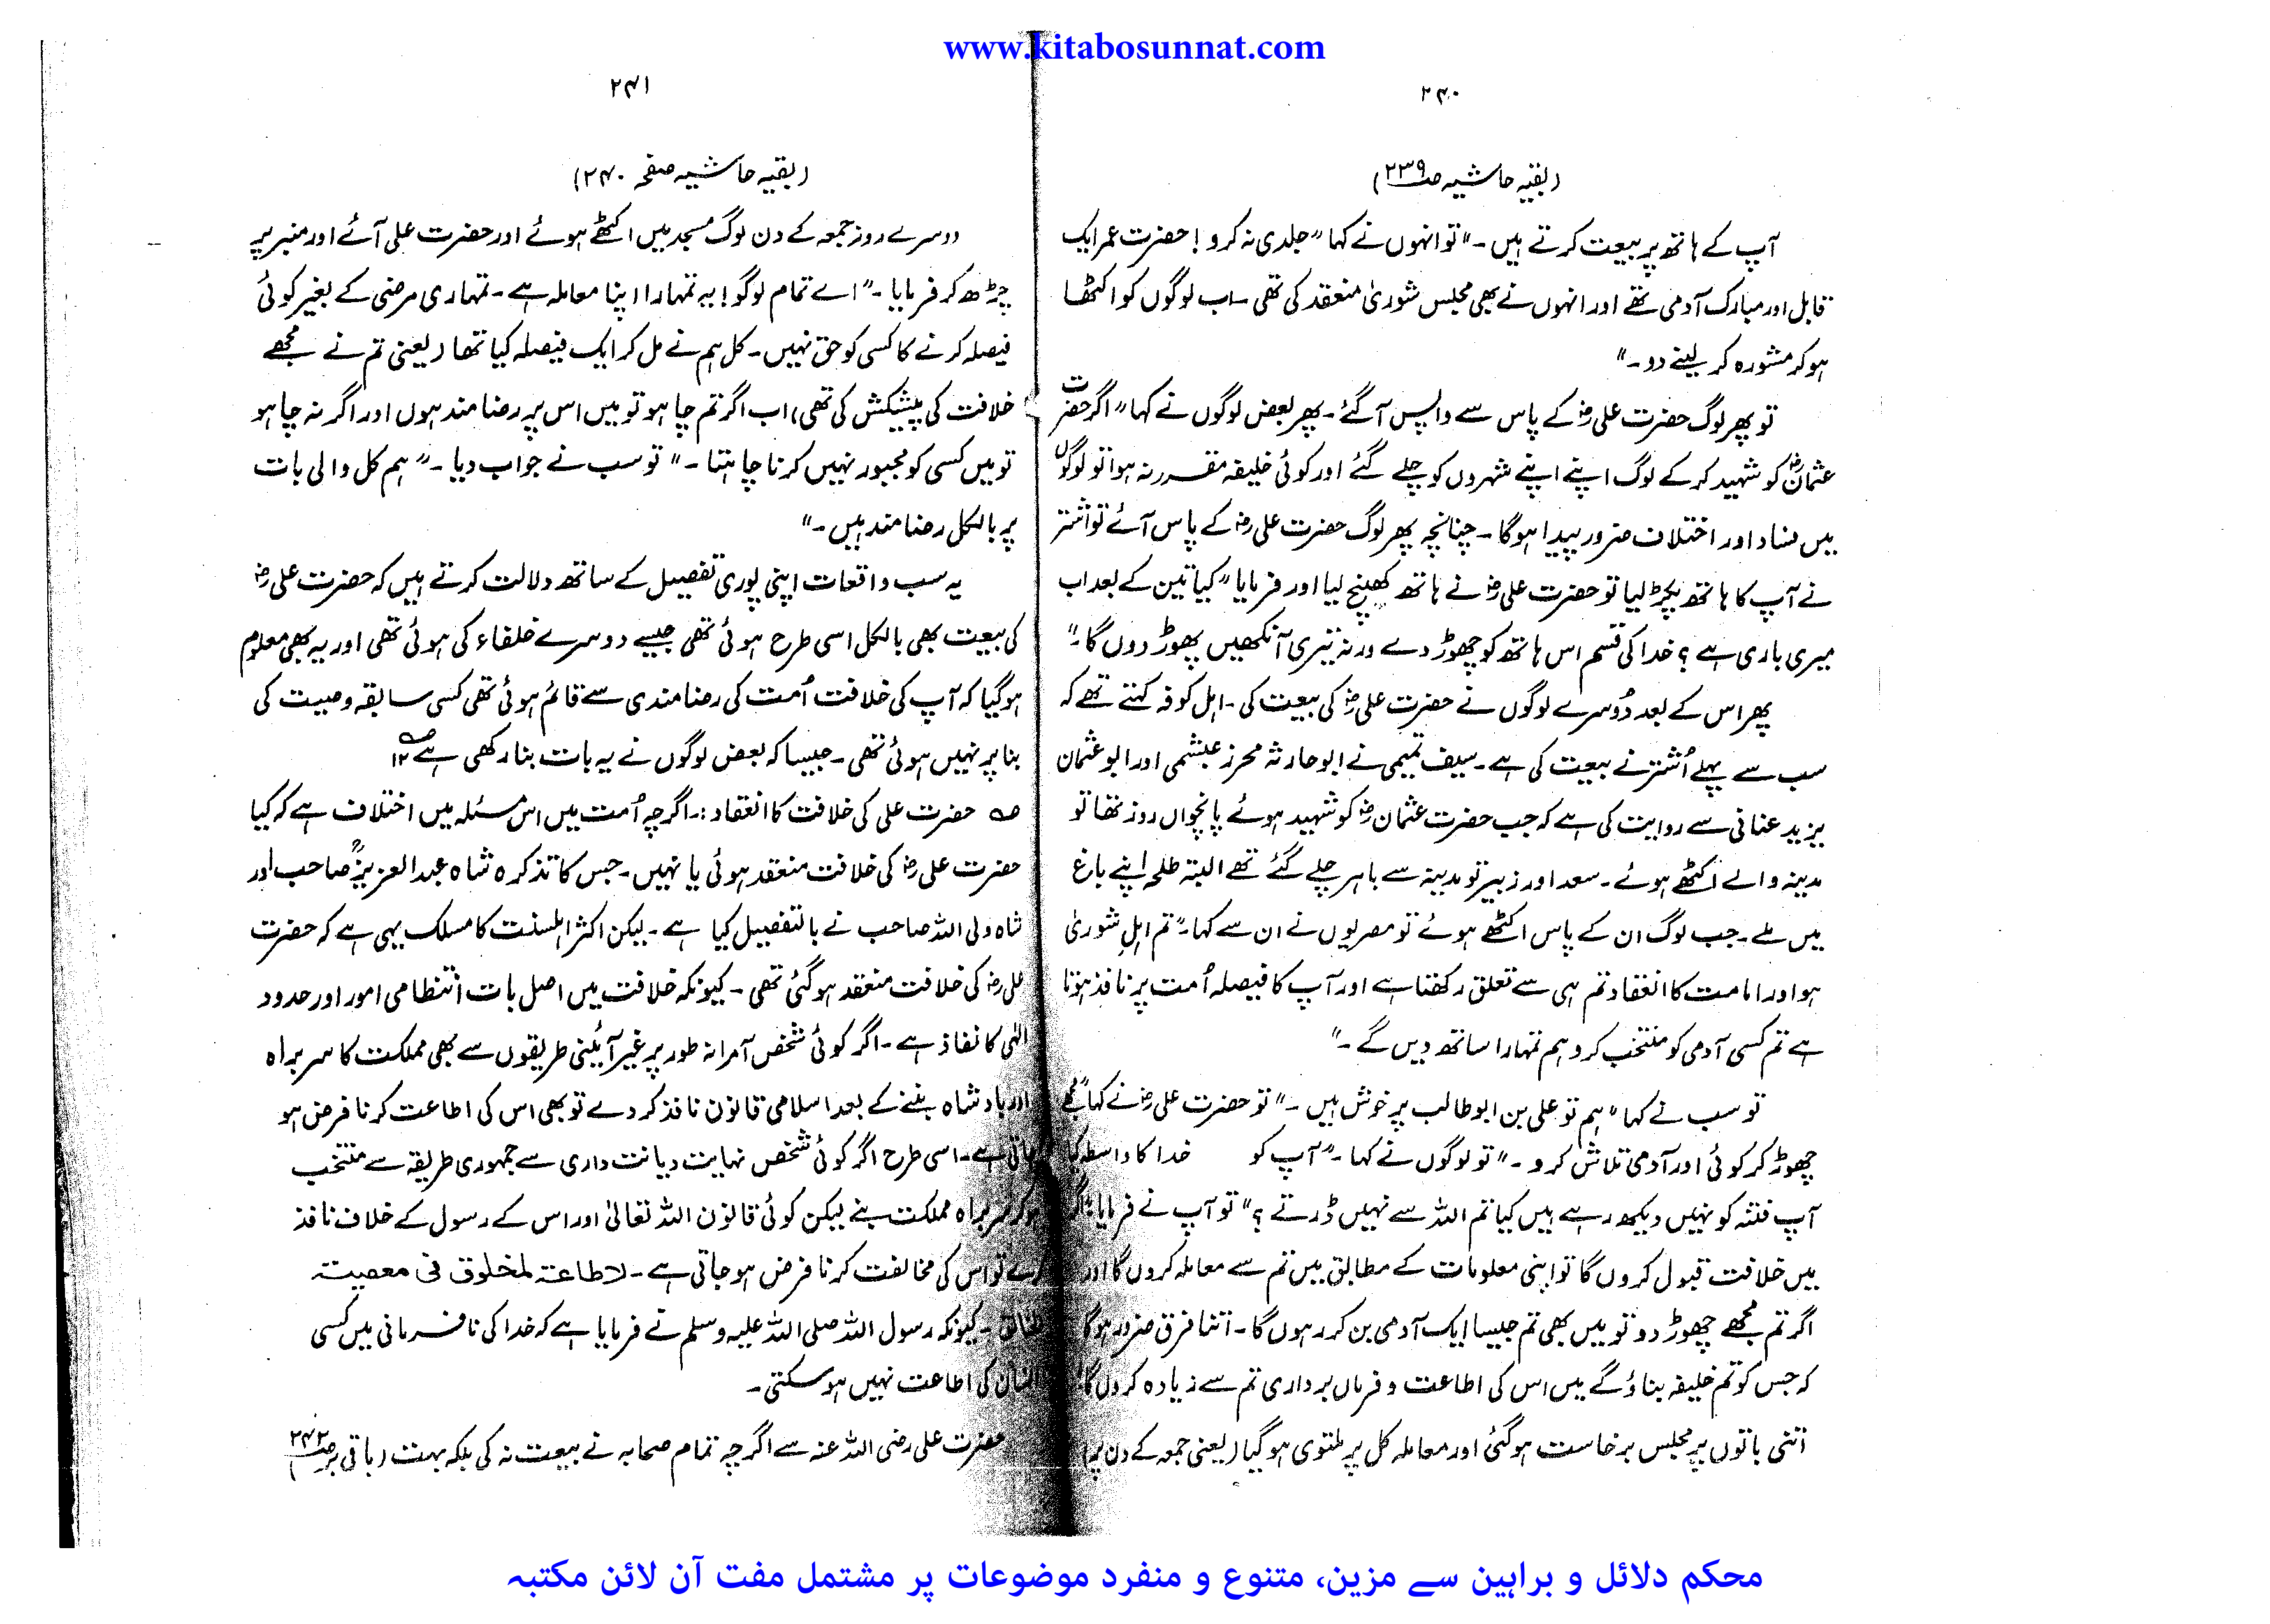 www.kitabosunnat.com
۲۴۰
(بقیہ حاشیہ صـ ۲۳۹)
آپ کے ہاتھ پر بیعت کرتے ہیں۔" تو انہوں نے کہا "جلدی نہ کرو! حضرت عمر ایک
قابل اور مبارک آدمی تھے اور انہوں نے بھی مجلس شوریٰ منعقد کی تھی۔ اب لوگوں کو اکٹھا
ہو کر مشورہ کر لینے دو۔"
تو پھر لوگ حضرت علی رضؓ کے پاس سے واپس آ گئے۔ پھر بعض لوگوں نے کہا "اگر حضرت
عثمانؓ کو شہید کر کے لوگ اپنے اپنے شہروں کو چلے گئے اور کوئی خلیفہ مقرر نہ ہوا تو لوگوں
میں فساد اور اختلاف ضرور پیدا ہوگا۔ چنانچہ پھر لوگ حضرت علی رضؓ کے پاس آئے تو اشتر
نے آپ کا ہاتھ پکڑ لیا تو حضرت علی رضؓ نے ہاتھ کھینچ لیا اور فرمایا "کیا تین کے بعد اب
میری باری ہے؟ خدا کی قسم اس ہاتھ کو چھوڑ دے ورنہ تیری آنکھیں پھوڑ دوں گا۔"
پھر اس کے بعد دُوسرے لوگوں نے حضرت علی رضؓ کی بیعت کی۔ اہل کوفہ کہتے تھے کہ
سب سے پہلے اُشتر نے بیعت کی ہے۔ سیف تمیمی نے ابو حارثہ محرز عبشمی اور ابو عثمان
یزید غسانی سے روایت کی ہے کہ جب حضرت عثمان رضؓ کو شہید ہوئے پانچواں روز تھا تو
مدینہ والے اکٹھے ہوئے۔ سعد اور زبیر تو مدینہ سے باہر چلے گئے تھے البتہ طلحہ اپنے باغ
میں ملے۔ جب لوگ ان کے پاس اکٹھے ہوئے تو مصریوں نے ان سے کہا۔ "تم اہلِ شوریٰ
ہو اور امامت کا انعقاد تم ہی سے تعلق رکھتا ہے اور آپ کا فیصلہ اُمت پر نافذ ہوتا
ہے تم کسی آدمی کو منتخب کرو ہم تمہارا ساتھ دیں گے۔"
تو سب نے کہا "ہم تو علی بن ابو طالب پر خوش ہیں۔" تو حضرت علی رضؓ نے کہا "مجھے
چھوڑ کر کوئی اور آدمی تلاش کرو۔" تو لوگوں نے کہا۔ "آپ کو خدا کا واسطہ کیا
آپ فتنہ کو نہیں دیکھ رہے ہیں کیا تم اللہ سے نہیں ڈرتے؟" تو آپ نے فرمایا "اگر
میں خلافت قبول کروں گا تو اپنی معلومات کے مطابق میں تم سے معاملہ کروں گا اور
اگر تم مجھے چھوڑ دو تو میں بھی تم جیسا ایک آدمی بن کر رہوں گا۔ اتنا فرق ضرور ہوگا
کہ جس کو تم خلیفہ بناؤ گے میں اس کی اطاعت و فرماں برداری تم سے زیادہ کروں گا"
اتنی باتوں پر مجلس برخاست ہو گئی اور معاملہ کل پر ملتوی ہو گیا (یعنی جمعہ کے دن پر)
۲۴۱
(بقیہ حاشیہ صفحہ ۲۴۰)
دوسرے روز جمعہ کے دن لوگ مسجد میں اکٹھے ہوئے اور حضرت علی آئے اور منبر پر
چڑھ کر فرمایا۔ "اے تمام لوگو! یہ تمہارا اپنا معاملہ ہے۔ تمہاری مرضی کے بغیر کوئی
فیصلہ کرنے کا کسی کو حق نہیں۔ کل ہم نے مل کر ایک فیصلہ کیا تھا (یعنی تم نے مجھے
خلافت کی پیشکش کی تھی) اب اگر تم چاہو تو میں اس پر رضامند ہوں اور اگر نہ چاہو
تو میں کسی کو مجبور نہیں کرنا چاہتا۔" تو سب نے جواب دیا۔ "ہم کل والی بات
پر بالکل رضامند ہیں۔"
یہ سب واقعات اپنی پوری تفصیل کے ساتھ دلالت کرتے ہیں کہ حضرت علی رضؓ
کی بیعت بھی بالکل اسی طرح ہوئی تھی جیسے دوسرے خلفاء کی ہوئی تھی اور یہ بھی معلوم
ہو گیا کہ آپ کی خلافت اُمت کی رضامندی سے قائم ہوئی تھی کسی سابقہ وصیت کی
بنا پر نہیں ہوئی تھی۔ جیسا کہ بعض لوگوں نے یہ بات بنا رکھی ہے ۱۲
حضرت علی کی خلافت کا انعقاد :۔ اگرچہ اُمت میں اس مسئلہ میں اختلاف ہے کہ کیا
حضرت علی رضؓ کی خلافت منعقد ہوئی یا نہیں۔ جس کا تذکرہ شاہ عبدالعزیزؒ صاحب اور
شاہ ولی اللہ صاحب نے بالتفصیل کیا ہے۔ لیکن اکثر اہلسنت کا مسلک یہی ہے کہ حضرت
علی رضؓ کی خلافت منعقد ہو گئی تھی۔ کیونکہ خلافت میں اصل بات انتظامی امور اور حدود
الٰہی کا نفاذ ہے۔ اگر کوئی شخص آمرانہ طور پر غیر آئینی طریقوں سے بھی مملکت کا سربراہ
اور بادشاہ بننے کے بعد اسلامی قانون نافذ کر دے تو بھی اس کی اطاعت کرنا فرض ہو
جاتی ہے۔ اسی طرح اگر کوئی شخص نہایت دیانت داری سے جمہوری طریقہ سے منتخب
ہو کر سربراہ مملکت بنے لیکن کوئی قانون اللہ تعالیٰ اور اس کے رسول کے خلاف نافذ
کرے تو اس کی مخالفت کرنا فرض ہو جاتی ہے۔ لاطاعۃ لمخلوق فی معصیتہ
الخالق۔ کیونکہ رسول اللہ صلی اللہ علیہ وسلم نے فرمایا ہے کہ خدا کی نافرمانی میں کسی
انسان کی اطاعت نہیں ہو سکتی۔
حضرت علی رضی اللہ عنہ سے اگرچہ تمام صحابہ نے بیعت نہ کی بلکہ بہت (باقی بر صـ ۲۴۲)
محکم دلائل و براہین سے مزین، متنوع و منفرد موضوعات پر مشتمل مفت آن لائن مکتبہ